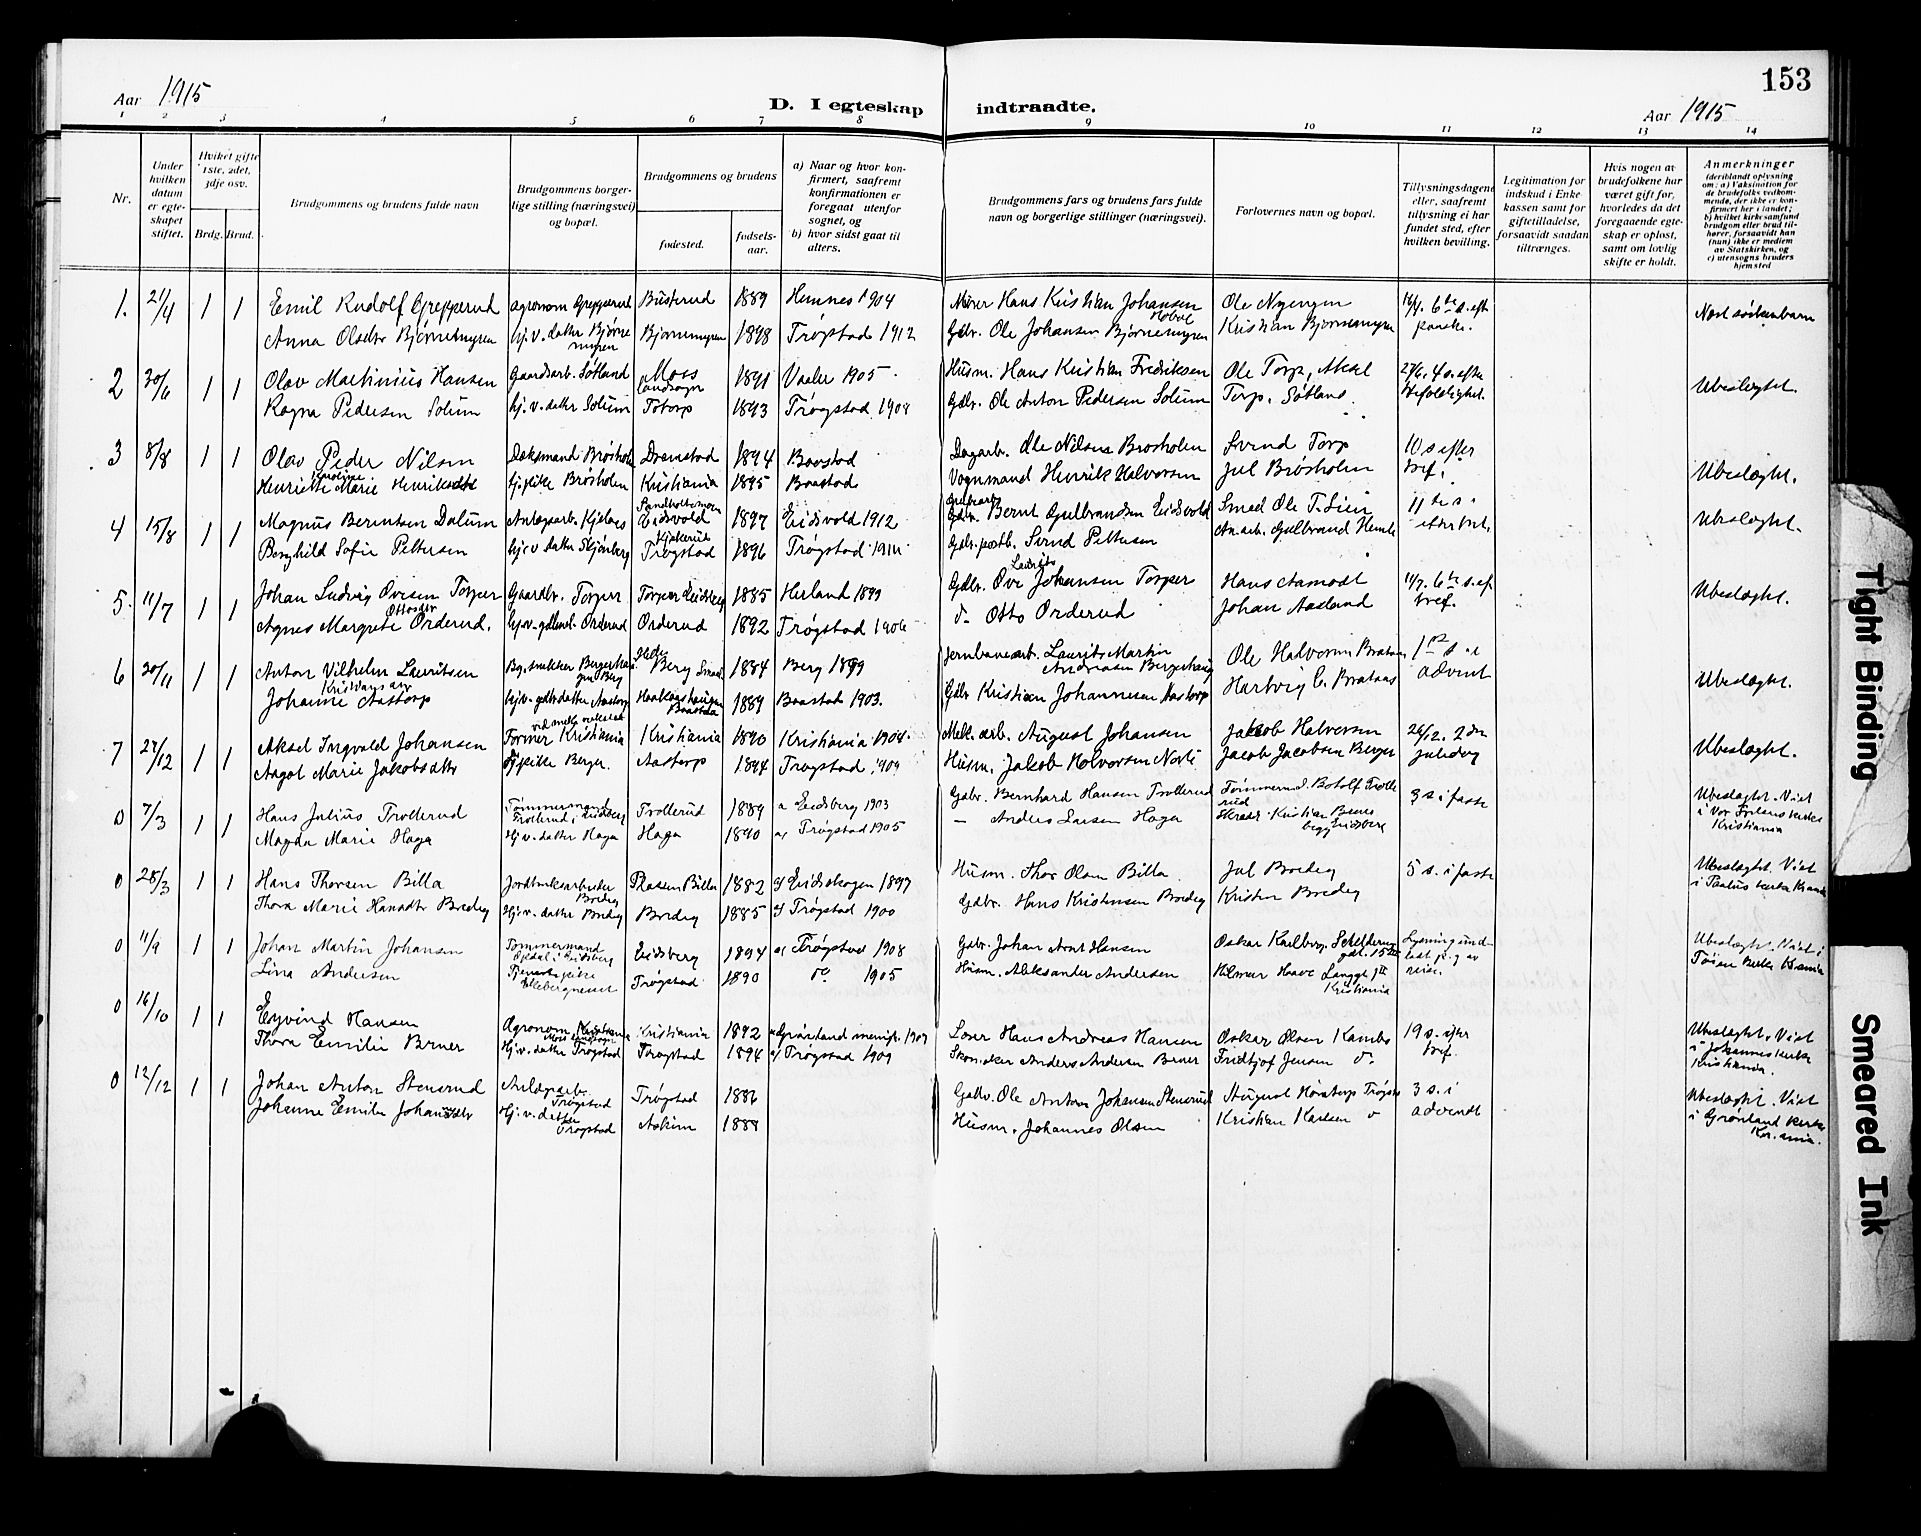 153
Aar 1915
D. I egteskap indtraadte.
Aar 1915
1 2 3 4 5 6 7 8 9 10 11 12 13 14
Nr.
Under hvilken datum er egteskapet stiftet.
Hviket gifte 1ste, 2det, 3dje osv.
Brdg. Brud.
Brudgommens og brudens fulde navn
Brudgommens borgerlige stilling (næringsvei) og bopæl.
Brudgommens og brudens
fødested.
fødselsaar.
a) Naar og hvor konfirmert, saafremt konfirmationen er foregaat utenfor sognet, og
b) hvor sidst gaat til alters.
Brudgommens fars og brudens fars fulde navn og borgerlige stillinger (næringsvei).
Forlovernes navn og bopæl.
Tillysningsdagene eller, saafremt tillysning ei har fundet sted, efter hvilken bevilling.
Legitimation for indskud i Enkekassen samt for giftetilladelse, forsaavidt saadan tiltrænges.
Hvis nogen av brudefolkene har været gift før, hvorledes da det foregaaende egteskap er opløst, samt om lovlig skifte er holdt.
Anmerkninger (deriblandt oplysning om: a) Vaksination for de brudefolks vedkommende, der ikke er konfirmert her i landet; b) hvilket kirkesamfund brudgom eller brud tilhører, forsaavidt han (hun) ikke er medlem av Statskirken, og c) utensogns bruders hjemsted
1. 21/4 1 1 Emil Rudolf Grepperud agronom Grepperud Busterud 1889 Hemnes 1904 Murer Hans Kristian Johansen Hobøl Ole Nyengen Næst søskenbarn
Anna Olsdtr Bjørnemyren hj. v. datter Bjørnemyren Bjørnemyren 1898 Trøgstad 1912 Gdbr. Ole Johansen Bjørnemyren Kristian Bjørnemyren
2 30/6 1 1 Olav Martinius Hansen Gaardsarb. Søtland Moss landsogn 1891 Vaaler 1905 Husm. Hans Kristian Fredriksen Ole Torp, 27/6. 4 s. efter Ubeslægtet.
Ragna Pedersen Solum hj. v. datter Solum Totorp 1893 Trøgstad 1908 Gdbr. Ole Anton Pedersen Solum Torp, Søtland.
3 8/8 1 1 Olav Peder Nilsen Brøsholen 1894 Baastad Dagarb. Ole Nilsen Brøsholen Svend Torp 10 s efter Ubeslægtet.
Henriette Marie Henriksdtr Tj.pike Brøsholen Kristiania 1895 Baastad Vognmand Henrik Halvorsen Jul Brøsholen tref.
4 15/8 1 1 Magnus Berntsen Dalum Anlægsarb. Eidsvold 1897 Eidsvold 1912 Bernt Gulbrandsen Eidsvold Smed Ole T. Lien 11 te s. Ubeslægtet.
Borghild Sofie Pettersen hj. v datter Skjønberg Trøgstad 1896 Trøgstad 1911 Gdbr. postb. Svend Pettersen An. arb. Gulbrand efter tref.
5. 11/7 1 1 Johan Ludvig Ovesen Torper Gaardbr. Torper Torper Eidsberg 1885 Herland 1899 Gdbr. Ove Lauritz Johansen Torper Hans Aamodt 11/7. 6te s. ef Ubeslægtet.
Agnes Margrete Ottosdtr Orderud. hj. v. Orderud Orderud 1892 Trøgstad 1906 do Otto Orderud Johan Aasland tref.
6 30/11 1 1 Anton Vilhelm Lauritsen Byg. snekker Berg 1884 Berg 1899 Jernbanearb. Laurits Martin Andreasen Ole Halvorsen Brataas 1ste s. i Ubeslægtet.
Johanne Kristiansdtr Aastorp hj. v. datter Aastorp Baastad 1889 Baastad 1903. Gdbr Kristian Johannesen Aastorp Hartvig C. Brataas advent
7 27/12 1 1 Aksel Ingvald Johansen Former Kristiania Kristiania 1890 Kristiania 1904. Mek. arb. August Johansen Jakob Halvorsen 26/12. 2 den Ubeslægtet.
Aagot Marie Jakobsdtr Tj.pike Berger Aastorp 1894 Trøgstad 1909 Husm. Jakob Halvorsen Jacob Jacobsen Berger juledag
0 7/3 1 1 Hans Julius Trollerud Tømmermand Trollerud i Eidsberg Trollerud 1889 a Eidsberg 1903 Gdbr. Bernhard Hansen Trollerud Tømmermd. Botolf Trollerud 3 s i faste Ubeslægtet. Viet i Vor Frelsers kirke Kristiania
Magda Marie Haga Hj. v. datter Haga Haga 1890 a) Trøgstad 1905 — Anders Larsen Haga Kristian
0 28/3 1 1 Hans Thorsen Billa Jordbruksarbeider Bredeg Plassen Billa 1882 a) Eidskogen 1897 Husm. Thor Olsen Billa Jul Bredeg 5 s. i faste Ubeslægtet. Viet i Paulus kirke Kr.ania
Thora Marie Hansdtr Bredeg Hj. v. datter Bredeg Bredeg 1885 a) Trøgstad 1900 Gdbr. Hans Kristensen Bredeg Kristen Bredeg
0 11/9 1 1 Johan Martin Johansen Tømmermand i Eidsberg Eidsberg 1894 a) Trøgstad 1908 Gdbr. Johan Hansen Oskar Karlberg. Ubeslægtet. Viet i Tøien kirke Kr.ania
Lina Andersen Tjenestepike Trøgstad 1890 do 1905 Husm. Aleksander Andersen Hilmar Haave Langgt. Kristiania
0 16/10 1 1 Eyvind Hansen Agronom Kristiania 1892 Grønland menigh. 1907 Hans Andreas Hansen Oskar Olsen 19 s. efter Ubeslægtet. Viet i Johannes kirke Kristiania.
Thora Emilie Bruer Hj. v. datter Trøgstad Trøgstad 1894 a) Trøgstad 1909 Skomaker Anders Andersen Bruer Fridtjof Jensen do tref.
0 12/12 1 1 Johan Anton Stensrud Anlægsarb. Trøgstad Trøgstad 1886 Gdbr. Ole Anton Johansen Stensrud August Trøgst 3 s. i Ubeslægtet. Viet i Grønland kirke Kr.ania.
Johanne Emilie Johansdtr Hj. v. datter Trøgstad Askim 1888 Husm. Johannes Olsen Kristian Karlsen advendt
Tight Binding
Smeared Ink